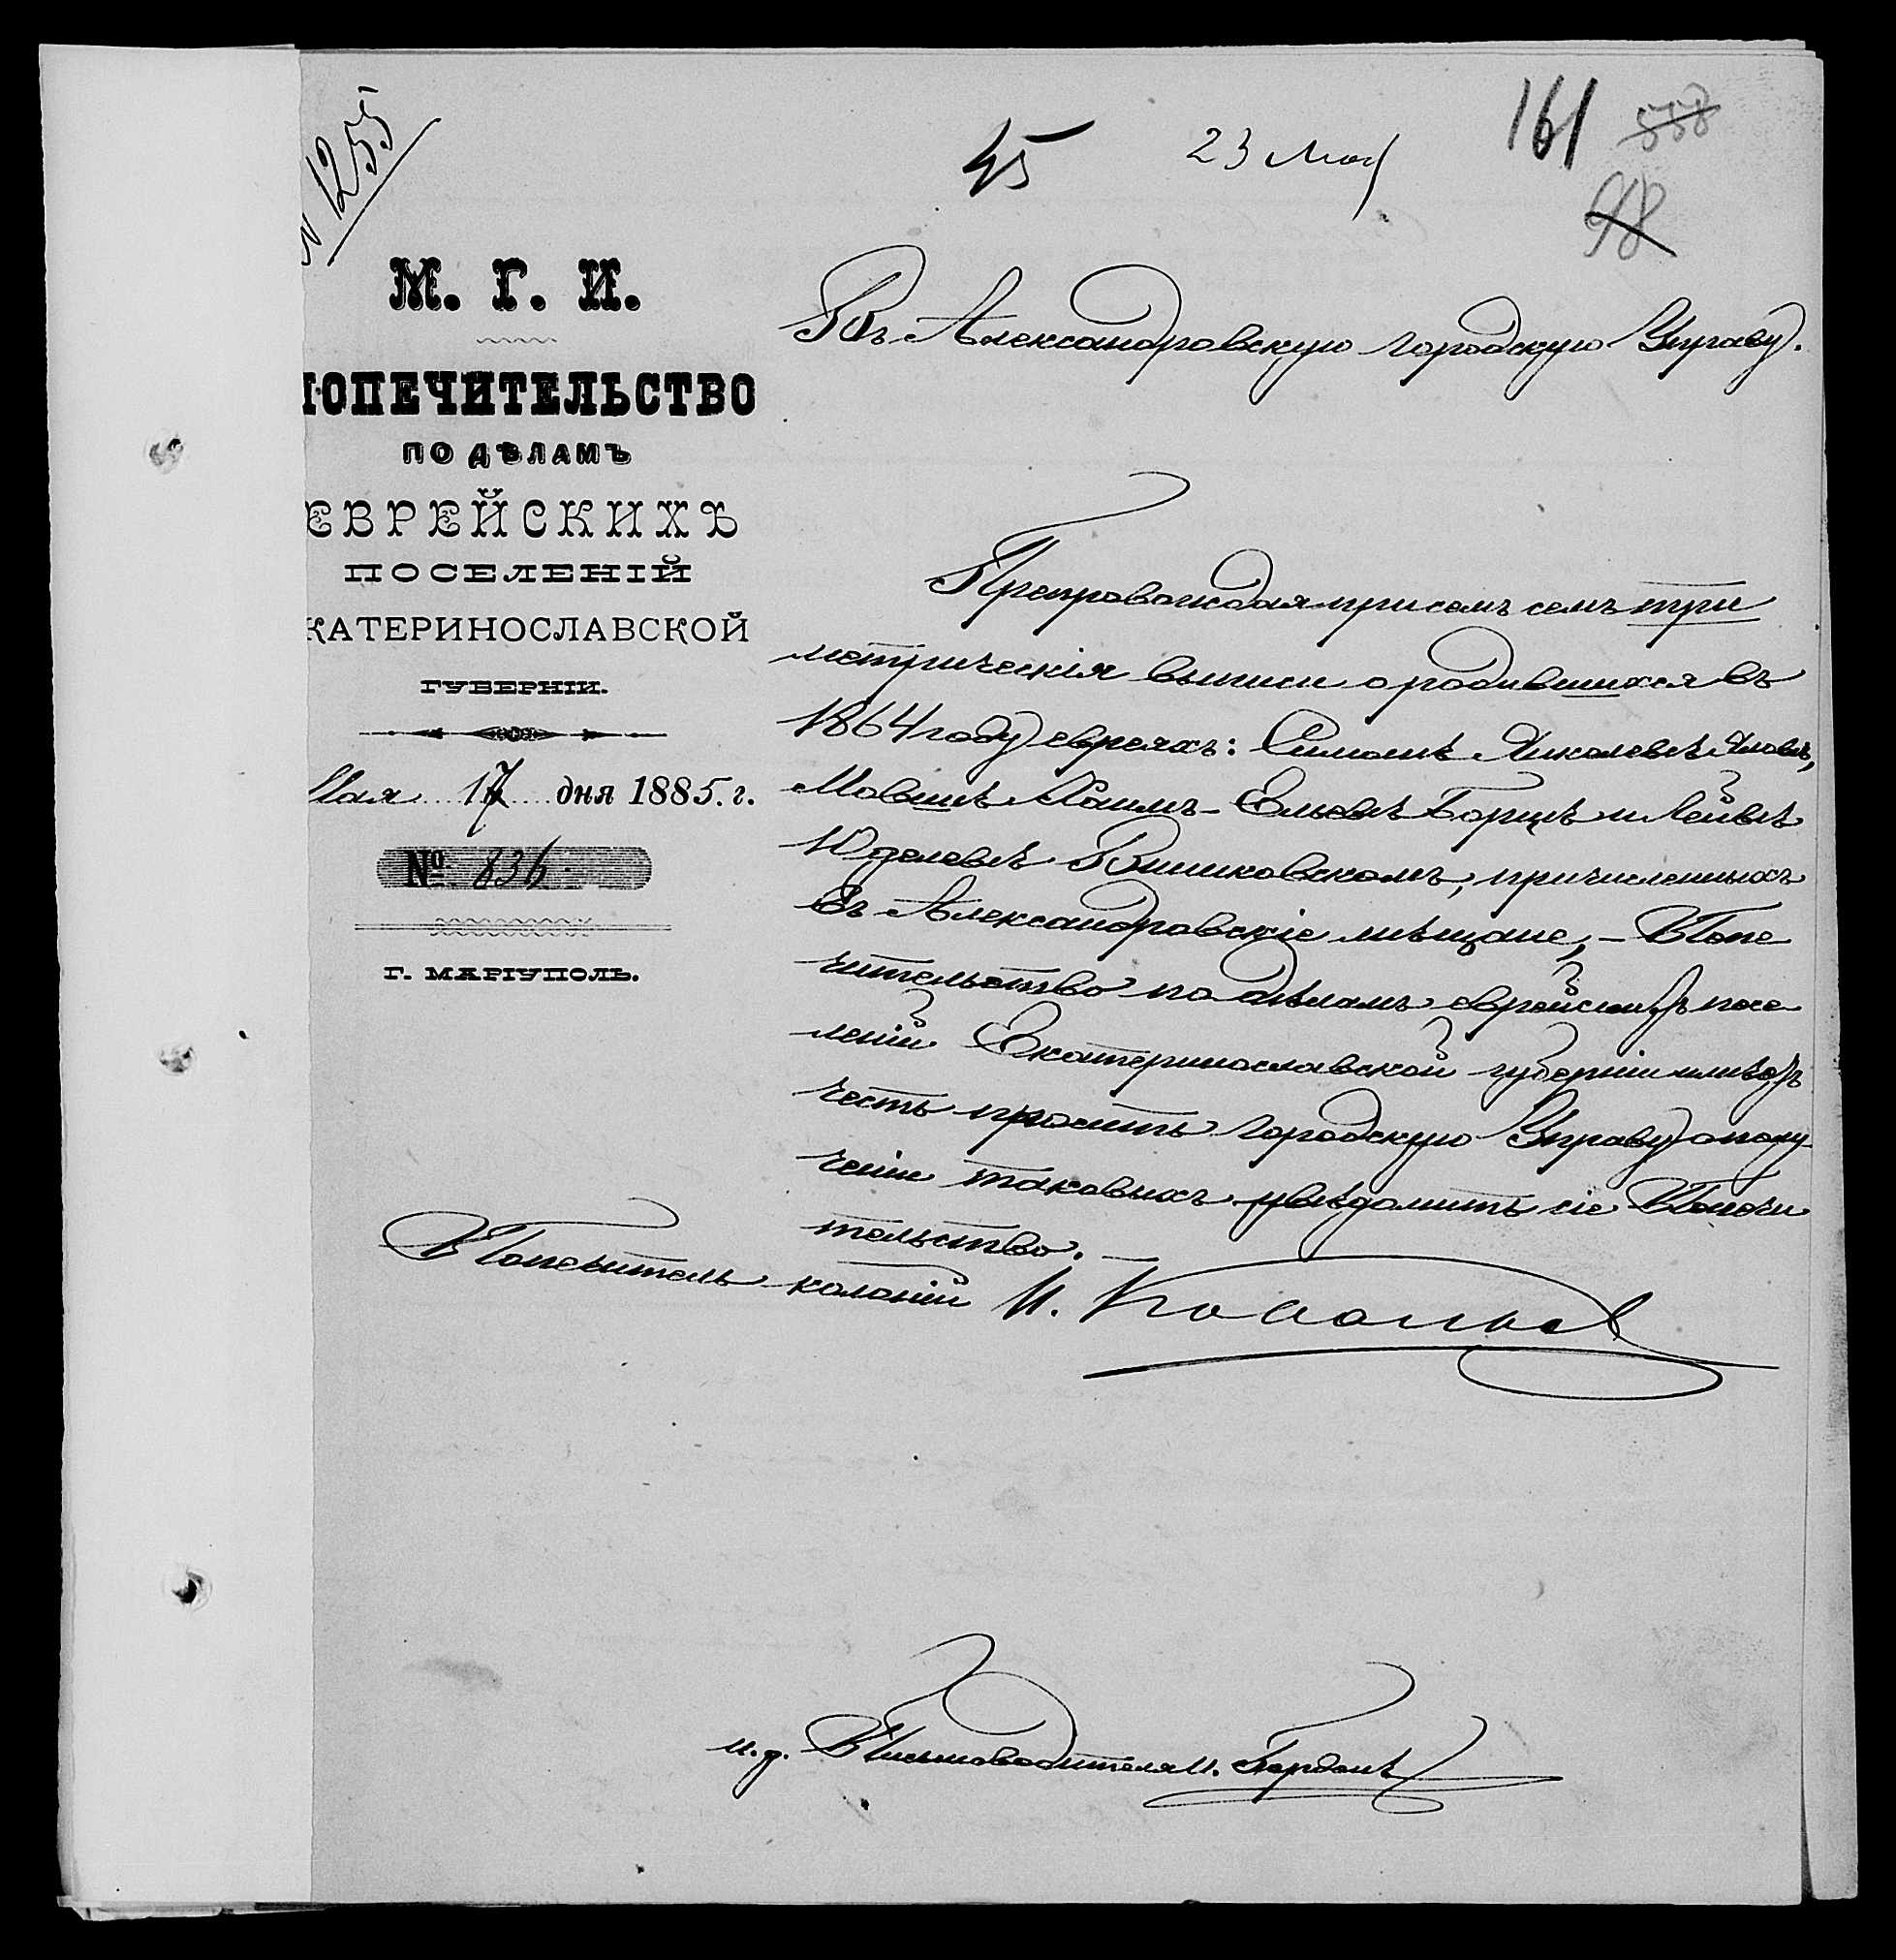 № 1255
45
23 Мая
161
558
98
М. Г. И.
ПОПЕЧИТЕЛЬСТВО
ПО ДѢЛАМЪ
ЕВРЕЙСКИХЪ
ПОСЕЛЕНІЙ
КАТЕРИНОСЛАВСКОЙ
ГУБЕРНІИ.
Мая 17 дня 1885. г.
№ 836.
Г. МАРІУПОЛЬ.
Въ Александровскую городскую Управу.
Препровождая при семъ три
метрическія выписи о родившихся въ
1864 году евреяхъ: Симонѣ
Мовшѣ Хаимъ- Борцъ и Лейбѣ
Юделевѣ Вишковскомъ, причисленныхъ
въ Александровскіе мѣщане, – Попе
чительство по дѣламъ еврейскихъ посе
леній Екатеринославской губерніи имѣетъ
честь просить городскую Управу о полу
ченіи таковыхъ увѣдомить сіе Попечи
тельство. –
Попечитель колоній И.
и. д. Письмоводителя И. Гордонъ